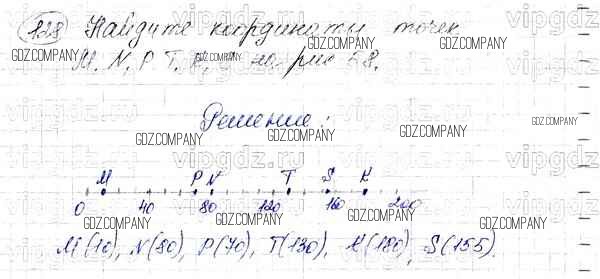 128 Найдите координаты точек
M, N, P, T, K, на рис 58.
Решение:
M P N T S K
0 40 80 120 160 200
M(10), N(80), P(70), T(130), K(180), S(155).
vipgdz.ru
GDZ.COMPANY